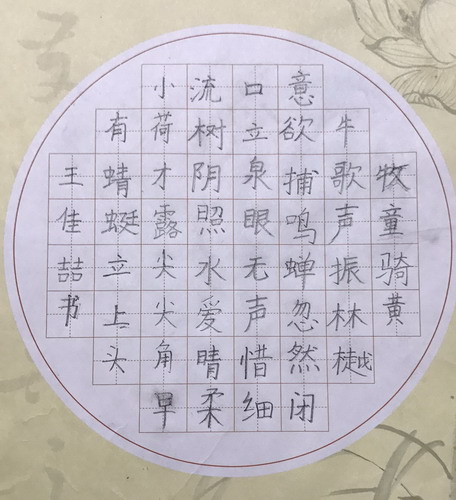 牧童骑黄
牛歌声振林樾
意欲捕鸣蝉忽然闭
口立泉眼无声惜细
流树阴照水爱晴柔
小荷才露尖尖角早
有蜻蜓立上头
王佳喆书